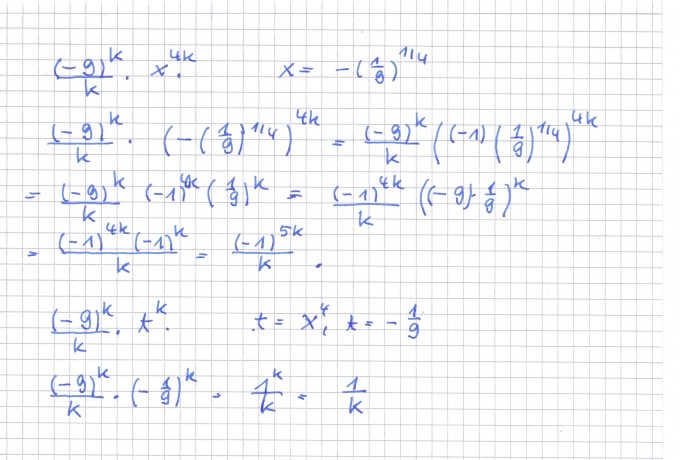 (-9)^k/k · x^4k.   x = -(1/9)^1/4
(-9)^k/k · (-(1/9)^1/4)^4k = (-9)^k/k ((-1)(1/9)^1/4)^4k
= (-9)^k/k (-1)^4k (1/9)^k = (-1)^4k/k ((-9)·1/9)^k
= (-1)^4k (-1)^k/k = (-1)^5k/k .
(-9)^k/k · t^k.   t = x^4, t = -1/9
(-9)^k/k · (-1/9)^k = 1^k/k = 1/k